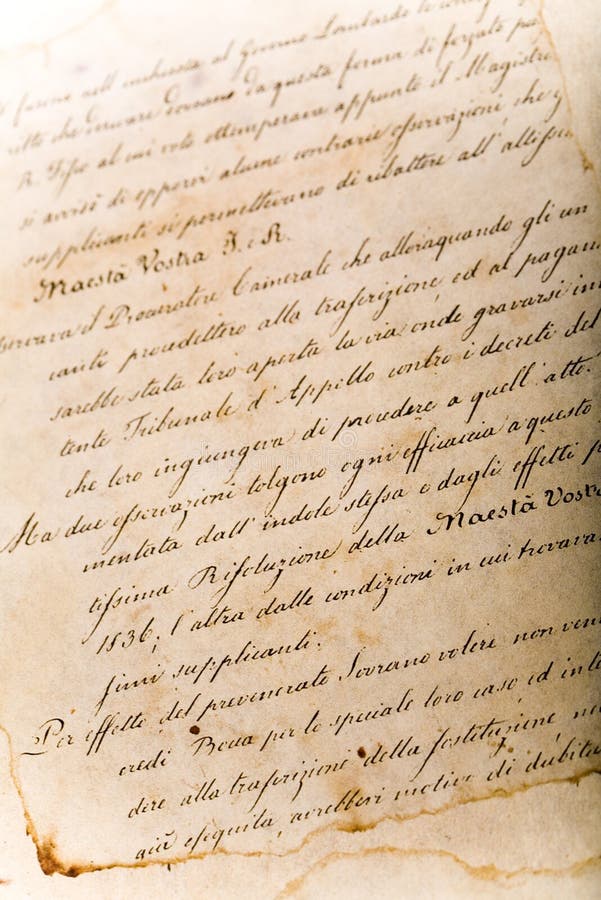 furono nell' inchiesta al Governo Lombardo
che derivare dovrano da questa forma di forzato
R. Fisco al cui voto ottemperava appunto il Magistr
si avvisò di opporsi alcune contrarie osservazioni, che
supplicanti si permettevano di ribattere all' altissi
Maestà Vostra I. e R.
servava il Procuratore Camerale che alloraquando gli un
canti procedettero alla trasferizione, ed al pagam
sarebbe stata loro aperta la via onde gravarsi in
tente Tribunale d' Appello contro i decreti del
che loro ingiungeva di procedere a quell' atto.
Ma due osservazioni tolgono ogni efficaccia a questo
mentata dall' indole stessa e dagli effetti
tissima Risoluzione della Maestà Vostr
1836, l' altra dalle condizioni in cui trovava
simi supplicanti.
Per effetto del prevenerato Sovrano volere non ven
credi Bocca per lo speciale loro caso ed int
dere alla trasferizione della sostituzione
già eseguita, avrebbero motivo di dubita